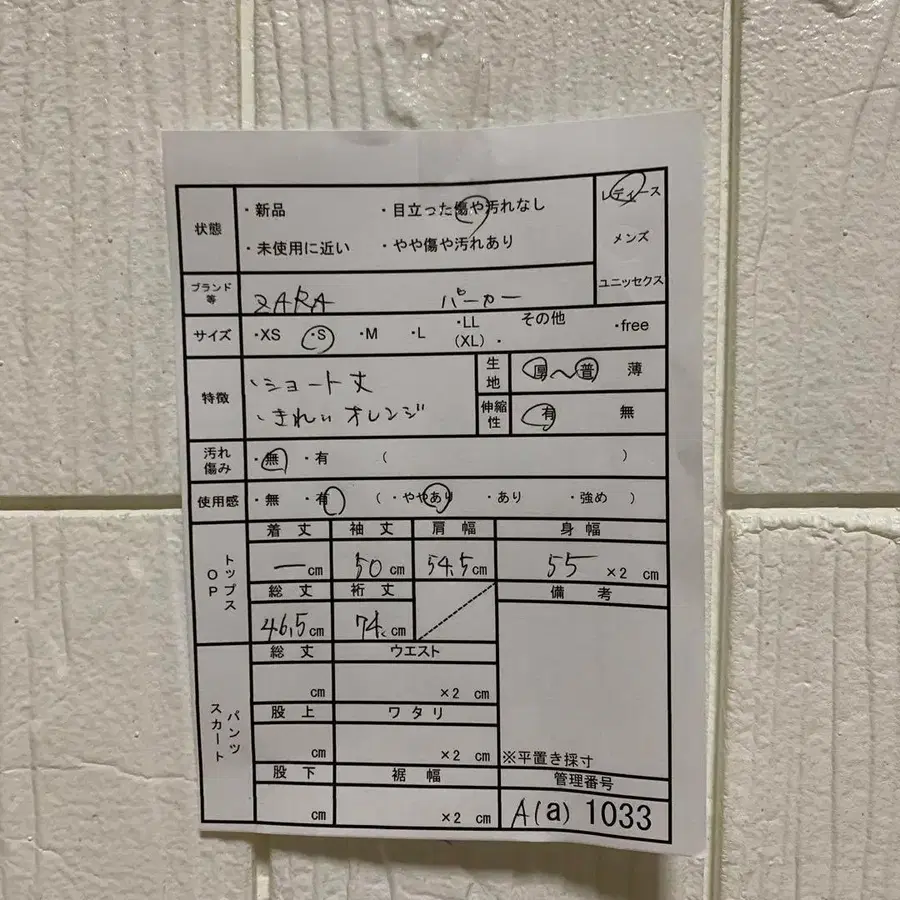 状態 ・新品 ・目立った傷や汚れなし レディース
・未使用に近い ・やや傷や汚れあり メンズ
ユニッセクス
ブランド等 ZARA パーカー
サイズ ・XS ・S ・M ・L ・LL (XL) ・ その他 ・free
特徴 ・ショート丈
・きれいオレンジ
生地 厚〜普 薄
伸縮性 有 無
汚れ傷み ・無 ・有 ( )
使用感 ・無 ・有 ( ・ややあり ・あり ・強め )
トップス OP
着丈 袖丈 肩幅 身幅
—cm 50cm 54.5cm 55×2 cm
総丈 裄丈 備考
46.5cm 74.cm
パンツ スカート
総丈 ウエスト
cm ×2 cm
股上 ワタリ
cm ×2 cm ※平置き採寸
股下 裾幅 管理番号
cm ×2 cm A(a) 1033